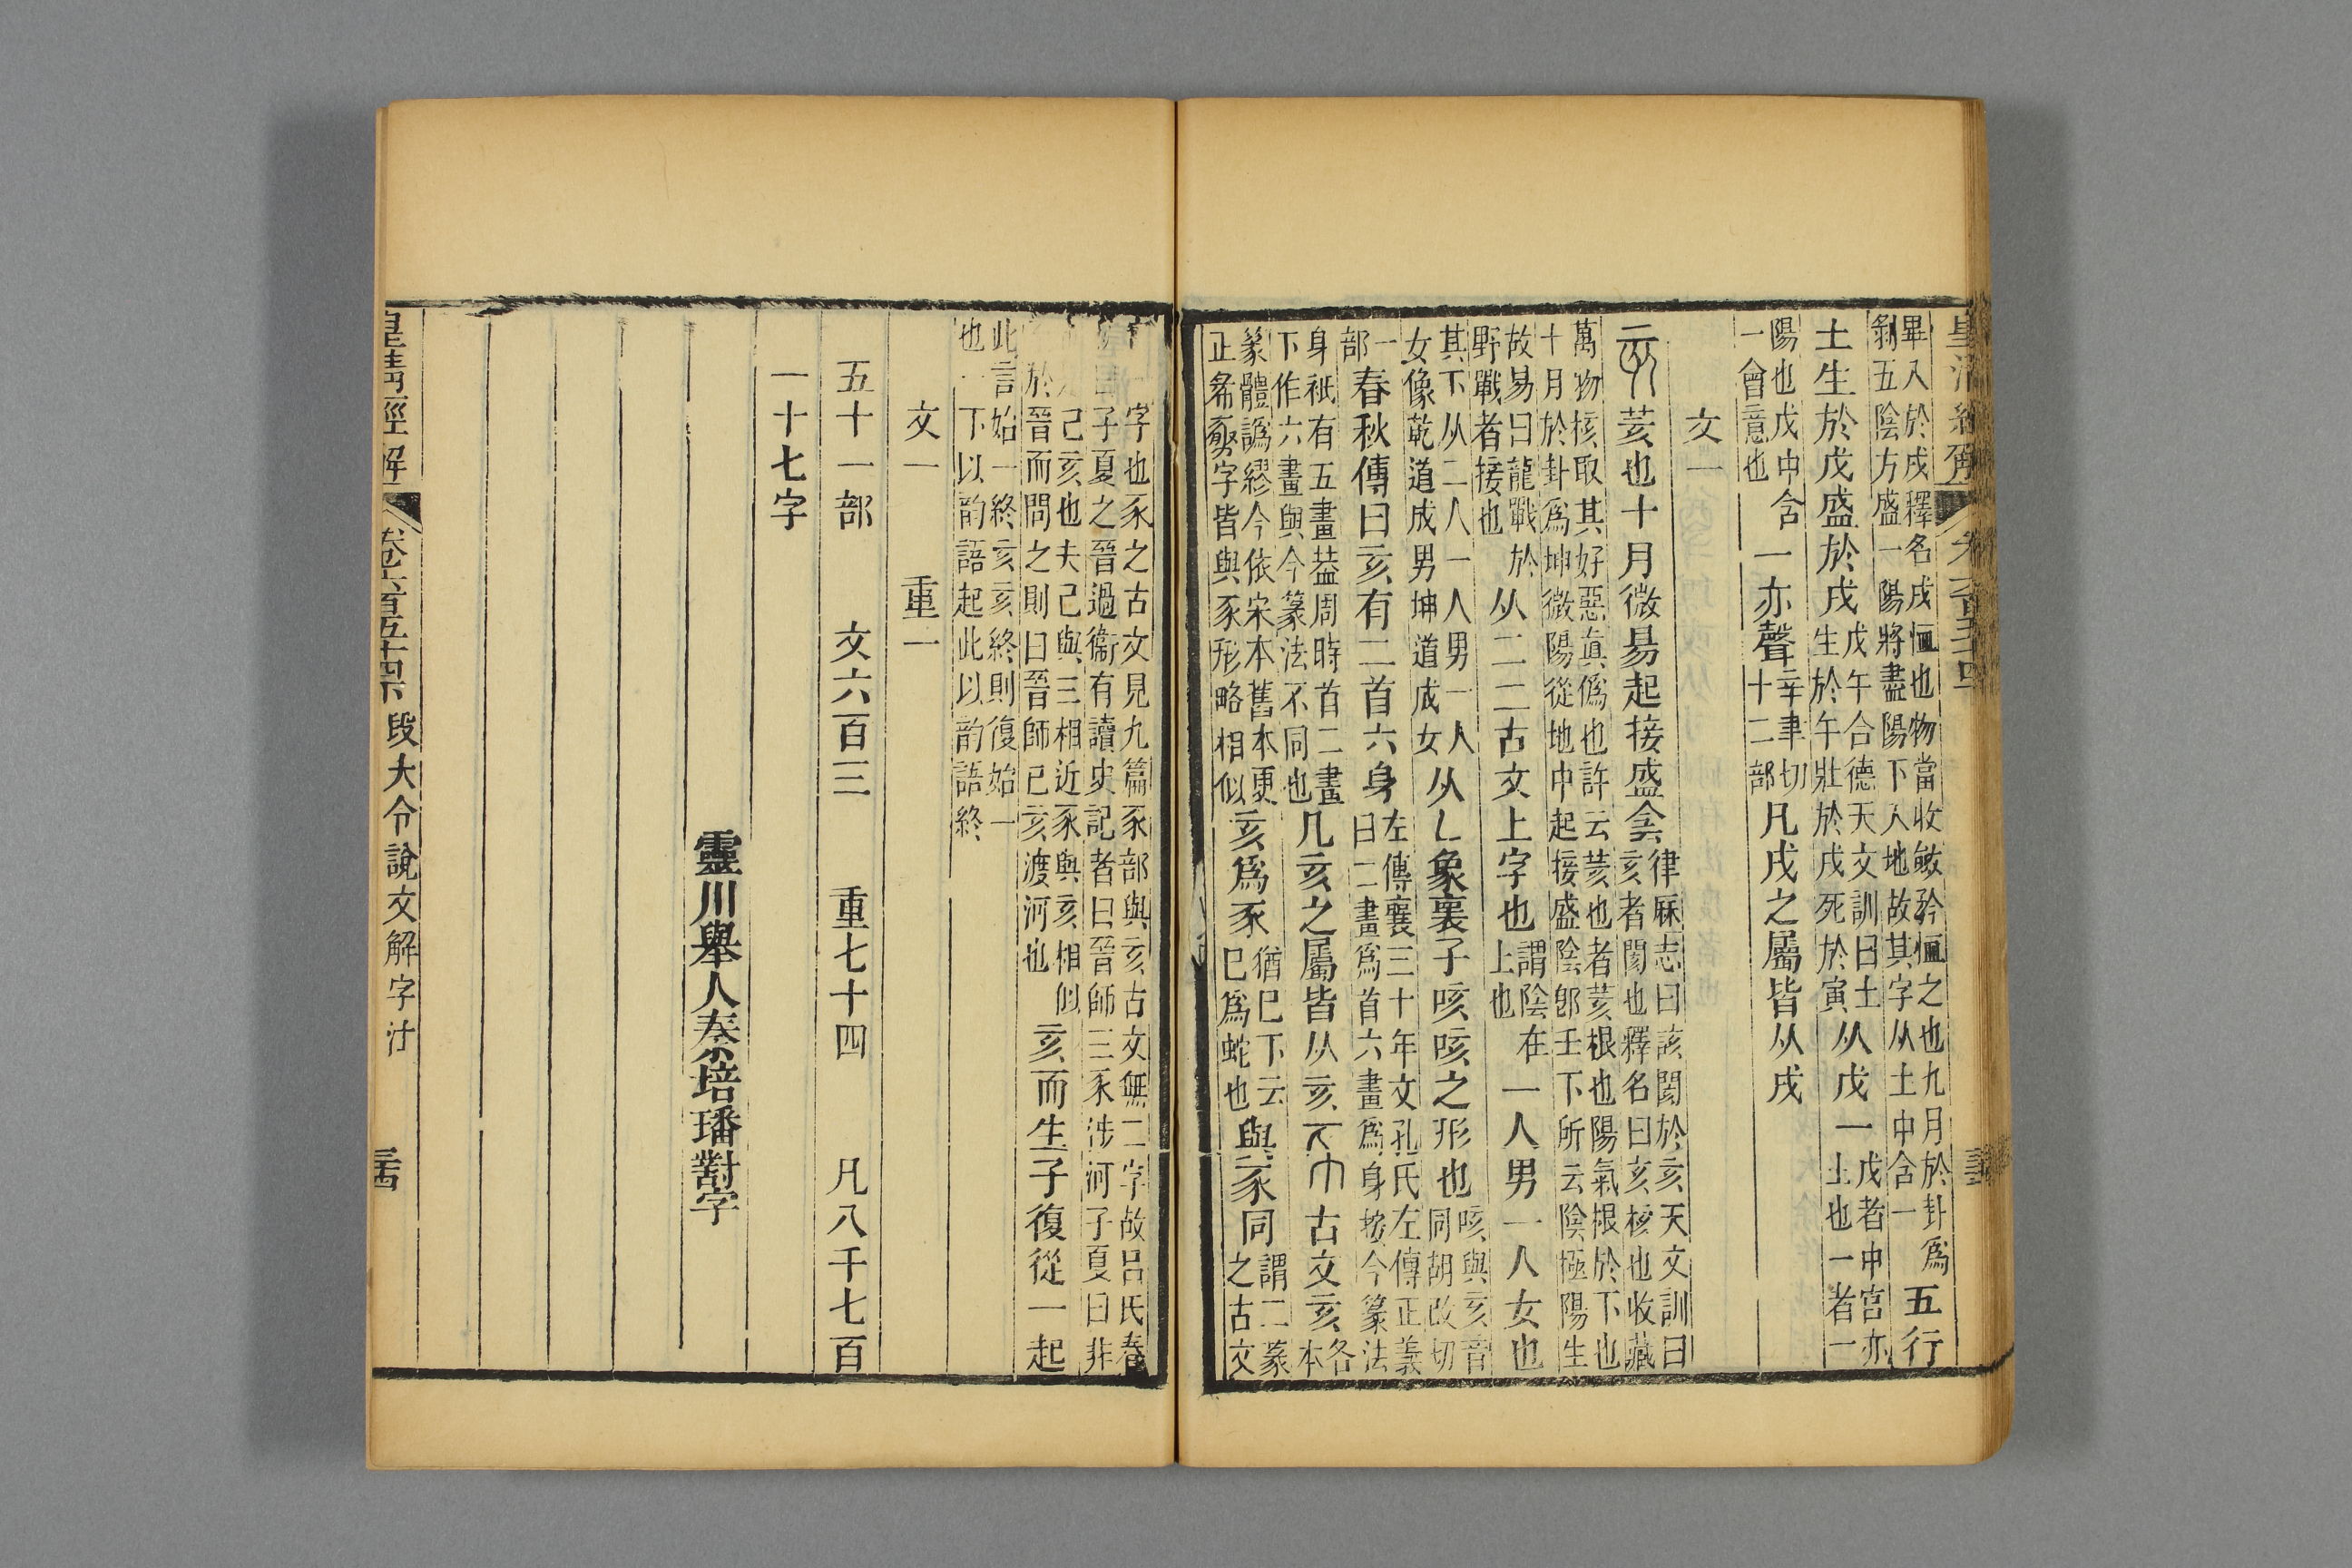 皇清經解
畢入於戌釋名戌恤也物當收斂矜恤之也九月於卦爲剝五陰方盛一陽將盡陽下入地故其字从土中含一五行
土生於戊盛於戌戊午合德天文訓曰土生於午壯於戌死於寅从戊一戊者中宮亦土也一者一
陽也戊中含一會意也一亦聲辛聿切十二部凡戌之屬皆从戌
文一
亥荄也十月微昜起接盛侌律厤志曰該閡於亥天文訓曰亥者閡也釋名曰亥核也收藏
萬物核取其好惡眞僞也許云荄也者荄根也陽氣根於下也十月於卦爲坤微陽從地中起接盛陰卽壬下所云陰極陽生
故易曰龍戰於野戰者接也从二二古文上字也謂陰在上也一人男一人女也
其下从二人一人男一人女像乾道成男坤道成女从乚象裹子咳咳之形也咳與亥音同胡改切
一部春秋傳曰亥有二首六身左傳襄三十年文孔氏左傳正義曰二畫爲首六畫爲身按今篆法
身祇有五畫葢周時首二畫下作六畫與今篆法不同也凡亥之屬皆从亥古文亥各本
篆體譌繆今依宋本舊本更正㣇字皆與豕形略相似亥爲豕猶巳下云巳爲蛇也與豕同謂二篆之古文
字也豕之古文見九篇豕部與亥古文無二字故呂氏春子夏之晉過衞有讀史記者曰晉師三豕涉河子夏曰非
己亥也夫己與三相近豕與亥相似於晉而問之則曰晉師己亥渡河也亥而生子復從一起
此言始一終亥亥終則復始一也一下以韵語起此以韵語終
文一 重一
五十一部 文六百三 重七十四 凡八千七百
一十七字
靈川舉人秦培璠對字
皇清經解 卷六百五十四下 段大令說文解字注 三十四